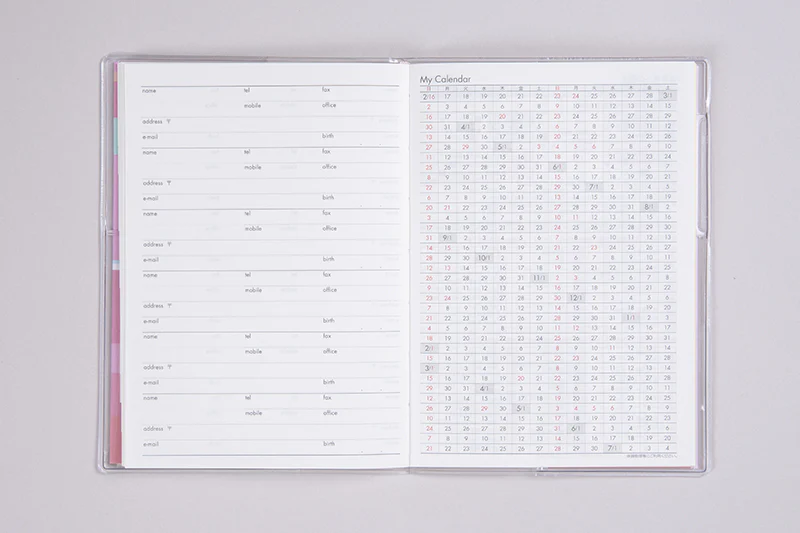 name tel fax
mobile office
address 〒
e-mail birth
name tel fax
mobile office
address 〒
e-mail birth
name tel fax
mobile office
address 〒
e-mail birth
name tel fax
mobile office
address 〒
e-mail birth
name tel fax
mobile office
address 〒
e-mail birth
name tel fax
mobile office
address 〒
e-mail birth
My Calendar
日 月 火 水 木 金 土 日 月 火 水 木 金 土
2/16 17 18 19 20 21 22 23 24 25 26 27 28 3/1
2 3 4 5 6 7 8 9 10 11 12 13 14 15
16 17 18 19 20 21 22 23 24 25 26 27 28 29
30 31 4/1 2 3 4 5 6 7 8 9 10 11 12
13 14 15 16 17 18 19 20 21 22 23 24 25 26
27 28 29 30 5/1 2 3 4 5 6 7 8 9 10
11 12 13 14 15 16 17 18 19 20 21 22 23 24
25 26 27 28 29 30 31 6/1 2 3 4 5 6 7
8 9 10 11 12 13 14 15 16 17 18 19 20 21
22 23 24 25 26 27 28 29 30 7/1 2 3 4 5
6 7 8 9 10 11 12 13 14 15 16 17 18 19
20 21 22 23 24 25 26 27 28 29 30 31 8/1 2
3 4 5 6 7 8 9 10 11 12 13 14 15 16
17 18 19 20 21 22 23 24 25 26 27 28 29 30
31 9/1 2 3 4 5 6 7 8 9 10 11 12 13
14 15 16 17 18 19 20 21 22 23 24 25 26 27
28 29 30 10/1 2 3 4 5 6 7 8 9 10 11
12 13 14 15 16 17 18 19 20 21 22 23 24 25
26 27 28 29 30 31 11/1 2 3 4 5 6 7 8
9 10 11 12 13 14 15 16 17 18 19 20 21 22
23 24 25 26 27 28 29 30 12/1 2 3 4 5 6
7 8 9 10 11 12 13 14 15 16 17 18 19 20
21 22 23 24 25 26 27 28 29 30 31 1/1 2 3
4 5 6 7 8 9 10 11 12 13 14 15 16 17
18 19 20 21 22 23 24 25 26 27 28 29 30 31
2/1 2 3 4 5 6 7 8 9 10 11 12 13 14
15 16 17 18 19 20 21 22 23 24 25 26 27 28
3/1 2 3 4 5 6 7 8 9 10 11 12 13 14
15 16 17 18 19 20 21 22 23 24 25 26 27 28
29 30 31 4/1 2 3 4 5 6 7 8 9 10 11
12 13 14 15 16 17 18 19 20 21 22 23 24 25
26 27 28 29 30 5/1 2 3 4 5 6 7 8 9
10 11 12 13 14 15 16 17 18 19 20 21 22 23
24 25 26 27 28 29 30 31 6/1 2 3 4 5 6
7 8 9 10 11 12 13 14 15 16 17 18 19 20
21 22 23 24 25 26 27 28 29 30 7/1 2 3 4